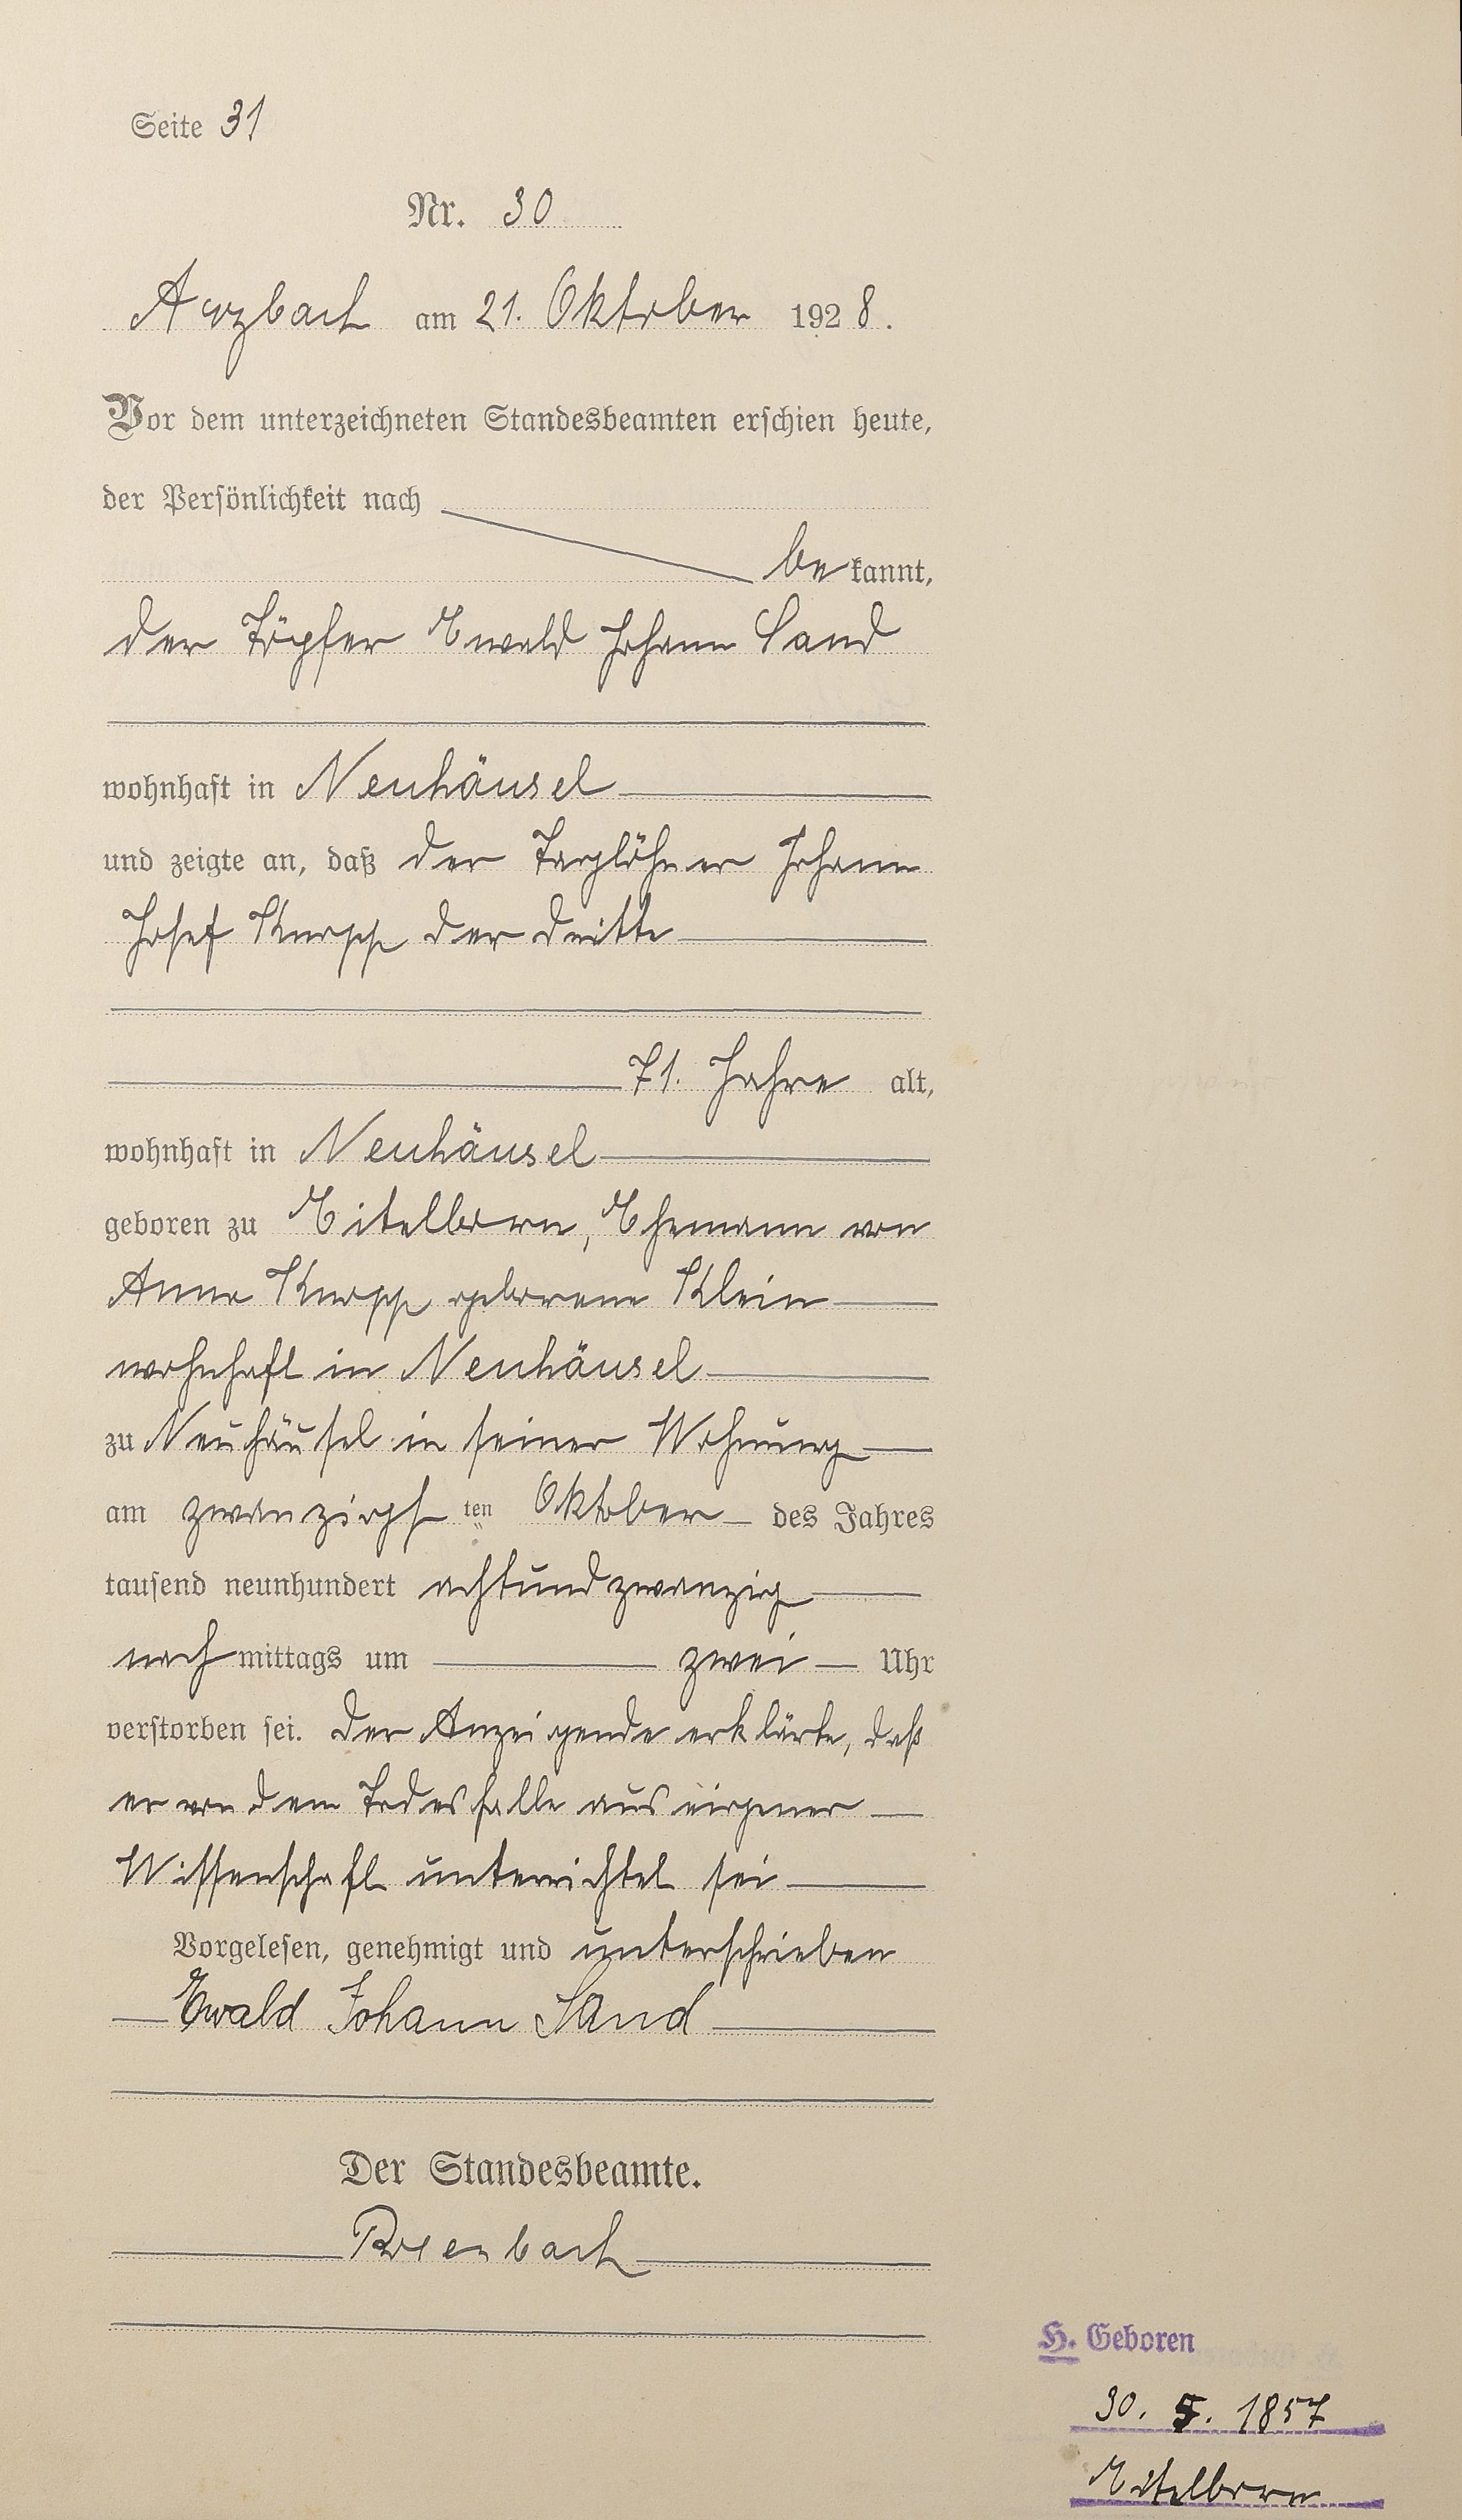 Seite 31
Nr. 30
Arzbach am 21. Oktober 1928.
Vor dem unterzeichneten Standesbeamten erschien heute,
der Persönlichkeit nach
bekannt,
der Töpfer Ewald Johann Sand
wohnhaft in Neuhäusel
und zeigte an, daß der Taglöhner Johann
Josef Knopp der dritte
71. Jahre alt,
wohnhaft in Neuhäusel
geboren zu Eitelborn, Ehemann von
Anna Knopp geborene Klein
wohnhaft in Neuhäusel
zu Neuhäusel in seiner Wohnung
am zwanzigsten Oktober des Jahres
tausend neunhundert achtundzwanzig
nachmittags um zwei Uhr
verstorben sei. Der Anzeigende erklärte, daß
er von dem Todesfalle aus eigener
Wissenschaft unterrichtet sei
Vorgelesen, genehmigt und unterschrieben
Ewald Johann Sand
Der Standesbeamte.
H. Geboren
30. 5. 1857
Eitelborn